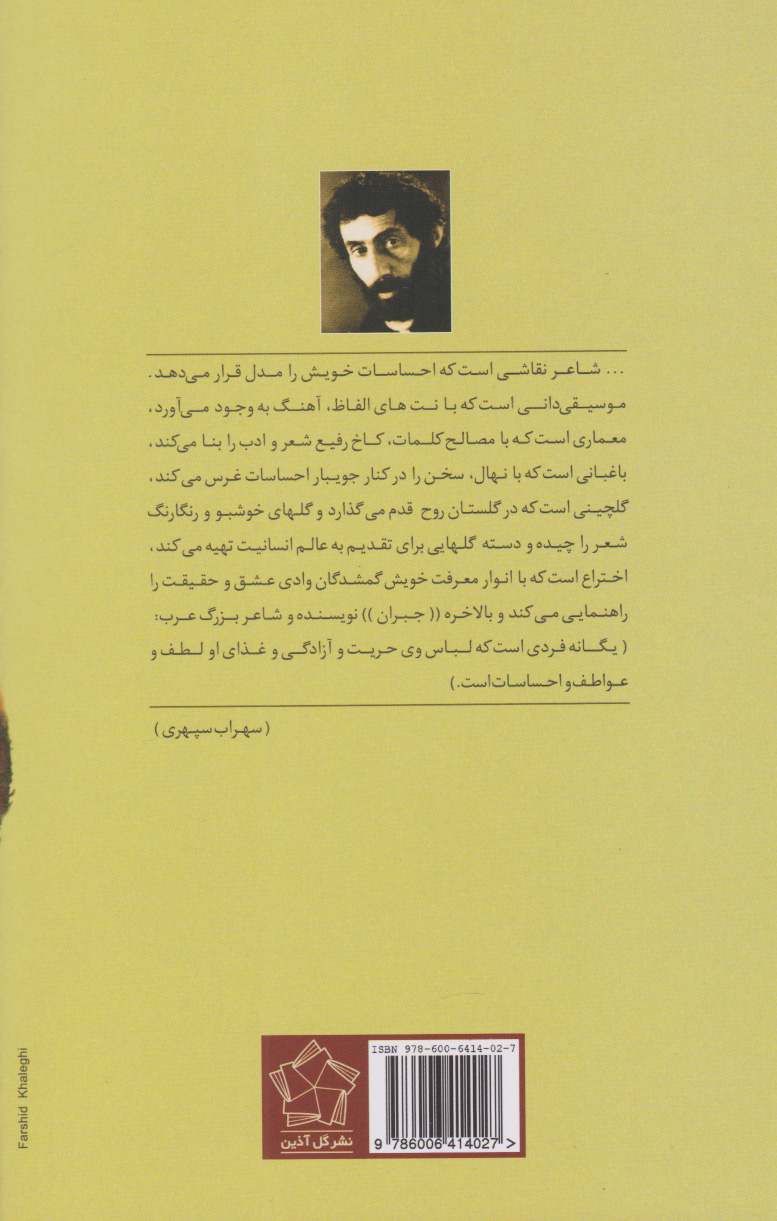 ... شاعر نقاشی است که احساسات خویش را مدل قرار می‌دهد.
موسیقی‌دانی است که با نت های الفاظ، آهنگ به وجود می‌آورد،
معماری است که با مصالح کلمات، کاخ رفیع شعر و ادب را بنا می‌کند،
باغبانی است که با نهال، سخن را در کنار جویبار احساسات غرس می کند،
گلچینی است که در گلستان روح قدم می گذارد و گلهای خوشبو و رنگارنگ
شعر را چیده و دسته گلهایی برای تقدیم به عالم انسانیت تهیه می کند،
اختراع است که با انوار معرفت خویش گمشدگان وادی عشق و حقیقت را
راهنمایی می کند و بالاخره (( جبران )) نویسنده و شاعر بزرگ عرب:
( یگانه فردی است که لباس وی حریت و آزادگی و غذای او لطف و
عواطف و احساسات است.)
( سهراب سپهری )
ISBN 978-600-6414-02-7
9 786006 414027 >
نشر گل آذین
Farshid Khaleghi